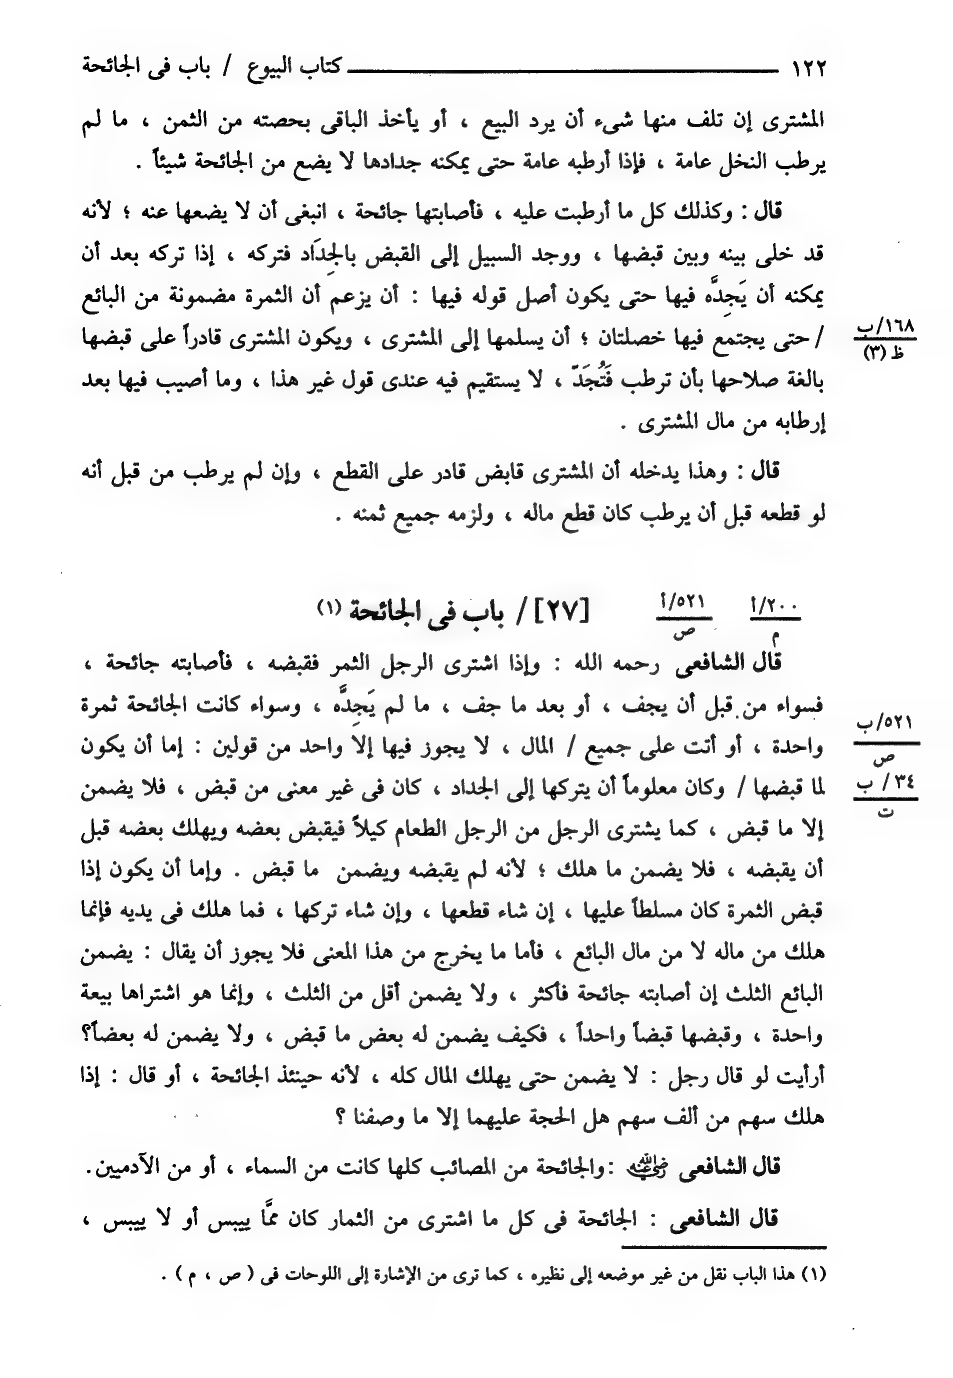 ١٢٢ ـــــــــــ كتاب البيوع / باب فى الجائحة
المشترى إن تلف منها شىء أن يرد البيع ، أو يأخذ الباقى بحصته من الثمن ، ما لم
يرطب النخل عامة ، فإذا أرطبه عامة حتى يمكنه جدادها لا يضع من الجائحة شيئاً .
قال : وكذلك كل ما أرطبت عليه ، فأصابتها جائحة ، انبغى أن لا يضعها عنه ؛ لأنه
قد خلى بينه وبين قبضها ، ووجد السبيل إلى القبض بالجِدَاد فتركه ، إذا تركه بعد أن
يمكنه أن يَجِدَّه فيها حتى يكون أصل قوله فيها : أن يزعم أن الثمرة مضمونة من البائع
/ حتى يجتمع فيها خصلتان ؛ أن يسلمها إلى المشترى ، ويكون المشترى قادراً على قبضها
١٦٨/ب
ظ (٣)
بالغة صلاحها بأن ترطب فَتُجَدّ ، لا يستقيم فيه عندى قول غير هذا ، وما أصيب فيها بعد
إرطابه من مال المشترى .
قال : وهذا يدخله أن المشترى قابض قادر على القطع ، وإن لم يرطب من قبل أنه
لو قطعه قبل أن يرطب كان قطع ماله ، ولزمه جميع ثمنه .
٢٠٠/أ
م
٥٢١/أ
ص
[٢٧] / باب فى الجائحة (١)
قال الشافعى رحمه الله : وإذا اشترى الرجل الثمر فقبضه ، فأصابته جائحة ،
فسواء من قبل أن يجف ، أو بعد ما جف ، ما لم يَجِدَّه ، وسواء كانت الجائحة ثمرة
واحدة ، أو أتت على جميع / المال ، لا يجوز فيها إلا واحد من قولين : إما أن يكون
٥٢١/ب
ص
لما قبضها / وكان معلوماً أن يتركها إلى الجداد ، كان فى غير معنى من قبض ، فلا يضمن
٣٤ / ب
ت
إلا ما قبض ، كما يشترى الرجل من الرجل الطعام كيلاً فيقبض بعضه ويهلك بعضه قبل
أن يقبضه ، فلا يضمن ما هلك ؛ لأنه لم يقبضه ويضمن ما قبض . وإما أن يكون إذا
قبض الثمرة كان مسلطاً عليها ، إن شاء قطعها ، وإن شاء تركها ، فما هلك فى يديه فإنما
هلك من ماله لا من مال البائع ، فأما ما يخرج من هذا المعنى فلا يجوز أن يقال : يضمن
البائع الثلث إن أصابته جائحة فأكثر ، ولا يضمن أقل من الثلث ، وإنما هو اشتراها بيعة
واحدة ، وقبضها قبضاً واحداً ، فكيف يضمن له بعض ما قبض ، ولا يضمن له بعضاً؟
أرأيت لو قال رجل : لا يضمن حتى يهلك المال كله ، لأنه حينئذ الجائحة ، أو قال : إذا
هلك سهم من ألف سهم هل الحجة عليهما إلا ما وصفنا ؟
قال الشافعى رضي الله عنه : والجائحة من المصائب كلها كانت من السماء ، أو من الآدميين.
قال الشافعى : الجائحة فى كل ما اشترى من الثمار كان مَّا ييبس أو لا ييبس ،
(١) هذا الباب نقل من غير موضعه إلى نظيره ، كما ترى من الإشارة إلى اللوحات فى ( ص ، م ) .